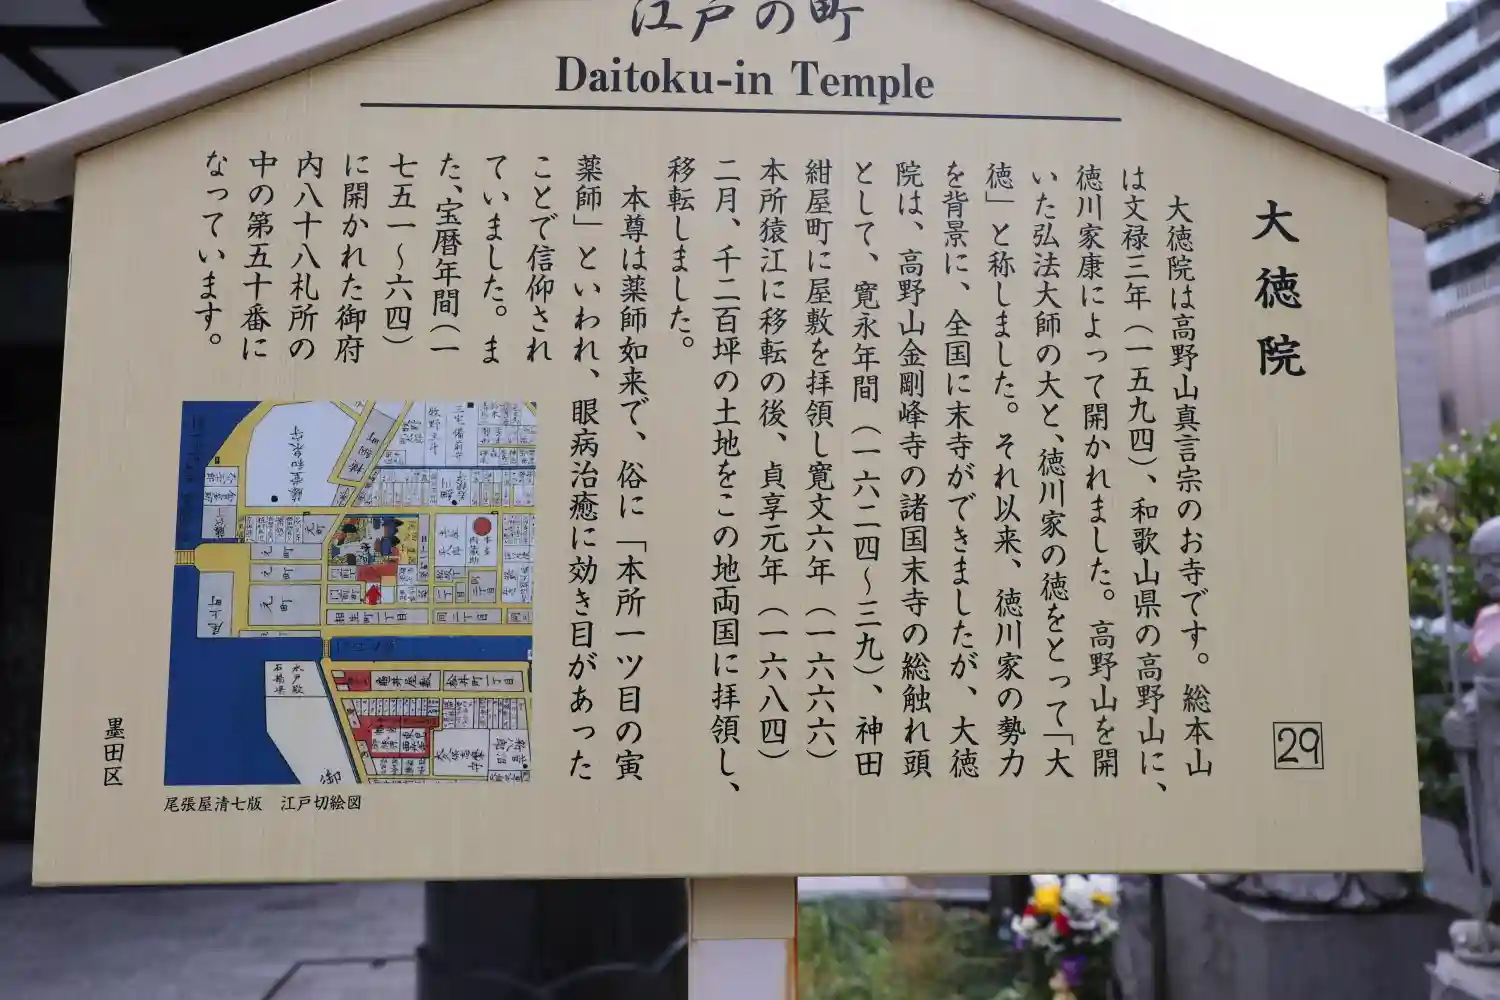 江戸の町
Daitoku-in Temple
大徳院
29
大徳院は高野山真言宗のお寺です。総本山
は文禄三年（一五九四）、和歌山県の高野山に、
徳川家康によって開かれました。高野山を開
いた弘法大師の大と、徳川家の徳をとって「大
徳」と称しました。それ以来、徳川家の勢力
を背景に、全国に末寺ができましたが、大徳
院は、高野山金剛峰寺の諸国末寺の総触れ頭
として、寛永年間（一六二四～三九）、神田
紺屋町に屋敷を拝領し寛文六年（一六六六）
本所猿江に移転の後、貞享元年（一六八四）
二月、千二百坪の土地をこの地両国に拝領し、
移転しました。
本尊は薬師如来で、俗に「本所一ツ目の寅
薬師」といわれ、眼病治癒に効き目があった
ことで信仰され
ていました。ま
た、宝暦年間（一
七五一～六四）
に開かれた御府
内八十八札所の
中の第五十番に
なっています。
元町
元町
元町
亀井屋敷
松井町一丁目
石置場
水戸殿
御
尾張屋清七版　江戸切絵図
墨田区